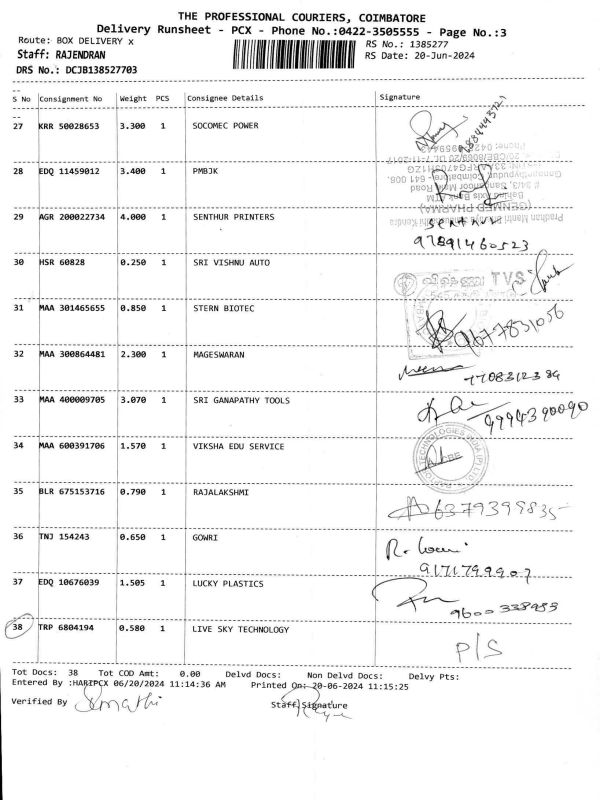 THE PROFESSIONAL COURIERS, COIMBATORE
Delivery Runsheet - PCX - Phone No.:0422-3505555 - Page No.:3
Route: BOX DELIVERY x
RS No.: 1385277
Staff: RAJENDRAN
RS Date: 20-Jun-2024
DRS No.: DCJB138527703
S No Consignment No Weight PCS Consignee Details Signature
27 KRR 50028653 3.300 1 SOCOMEC POWER
28 EDQ 11459012 3.400 1 PMBJK
29 AGR 200022734 4.000 1 SENTHUR PRINTERS
97891460523
30 HSR 60828 0.250 1 SRI VISHNU AUTO
TVS
31 MAA 301465655 0.850 1 STERN BIOTEC
9677831056
32 MAA 300864481 2.300 1 MAGESWARAN
7708312384
33 MAA 400009705 3.070 1 SRI GANAPATHY TOOLS
9994390090
34 MAA 600391706 1.570 1 VIKSHA EDU SERVICE
35 BLR 675153716 0.790 1 RAJALAKSHMI
6379399835
36 TNJ 154243 0.650 1 GOWRI
R. Gowri
9171799907
37 EDQ 10676039 1.505 1 LUCKY PLASTICS
9600338985
38 TRP 6804194 0.580 1 LIVE SKY TECHNOLOGY
P/S
Tot Docs: 38 Tot COD Amt: 0.00 Delvd Docs: Non Delvd Docs: Delvy Pts:
Entered By :HARIPCX 06/20/2024 11:14:36 AM Printed On: 20-06-2024 11:15:25
Verified By
Staff Signature